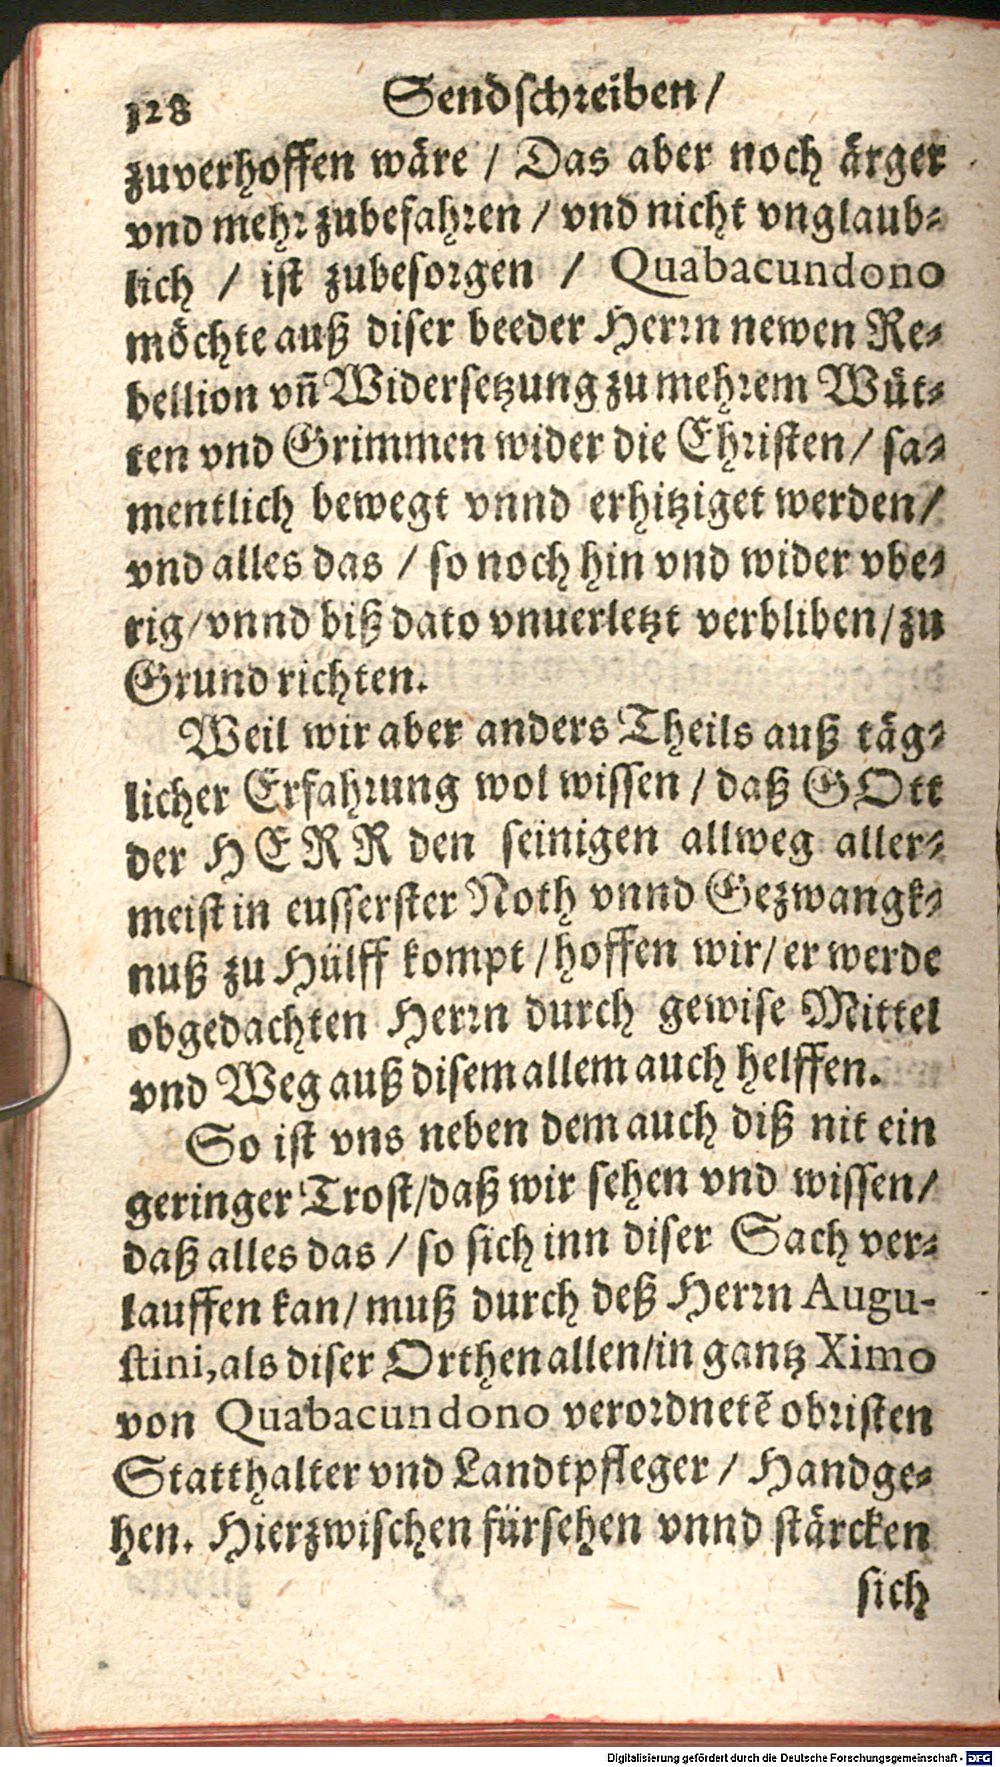 128 Sendschreiben /
zuverhoffen wäre / Das aber noch ärger
vnd mehr zubefahren / vnd nicht vnglaub-
lich / ist zubesorgen / Quabacundono
möchte auß diser beeder Herrn newen Re-
bellion vñ Widersetzung zu mehrem Wüt-
ten vnd Grimmen wider die Christen / sa-
mentlich bewegt vnnd erhitziget werden /
vnd alles das / so noch hin vnd wider vbe-
rig / vnnd biß dato vnuerletzt verbliben / zu
Grund richten.
Weil wir aber anders Theils auß täg-
licher Erfahrung wol wissen / daß GOtt
der HERR den seinigen allweg aller-
meist in eusserster Noth vnnd Gezwangk-
nuß zu Hülff kompt / hoffen wir / er werde
obgedachten Herrn durch gewise Mittel
vnd Weg auß disem allem auch helffen.
So ist vns neben dem auch diß nit ein
geringer Trost / daß wir sehen vnd wissen /
daß alles das / so sich inn diser Sach ver-
lauffen kan / muß durch deß Herrn Augu-
stini, als diser Orthen allen / in gantz Ximo
von Quabacundono verordnetẽ obristen
Statthalter vnd Landtpfleger / Handge-
hen. Hierzwischen fürsehen vnnd stärcken
sich
Digitalisierung gefördert durch die Deutsche Forschungsgemeinschaft - DFG